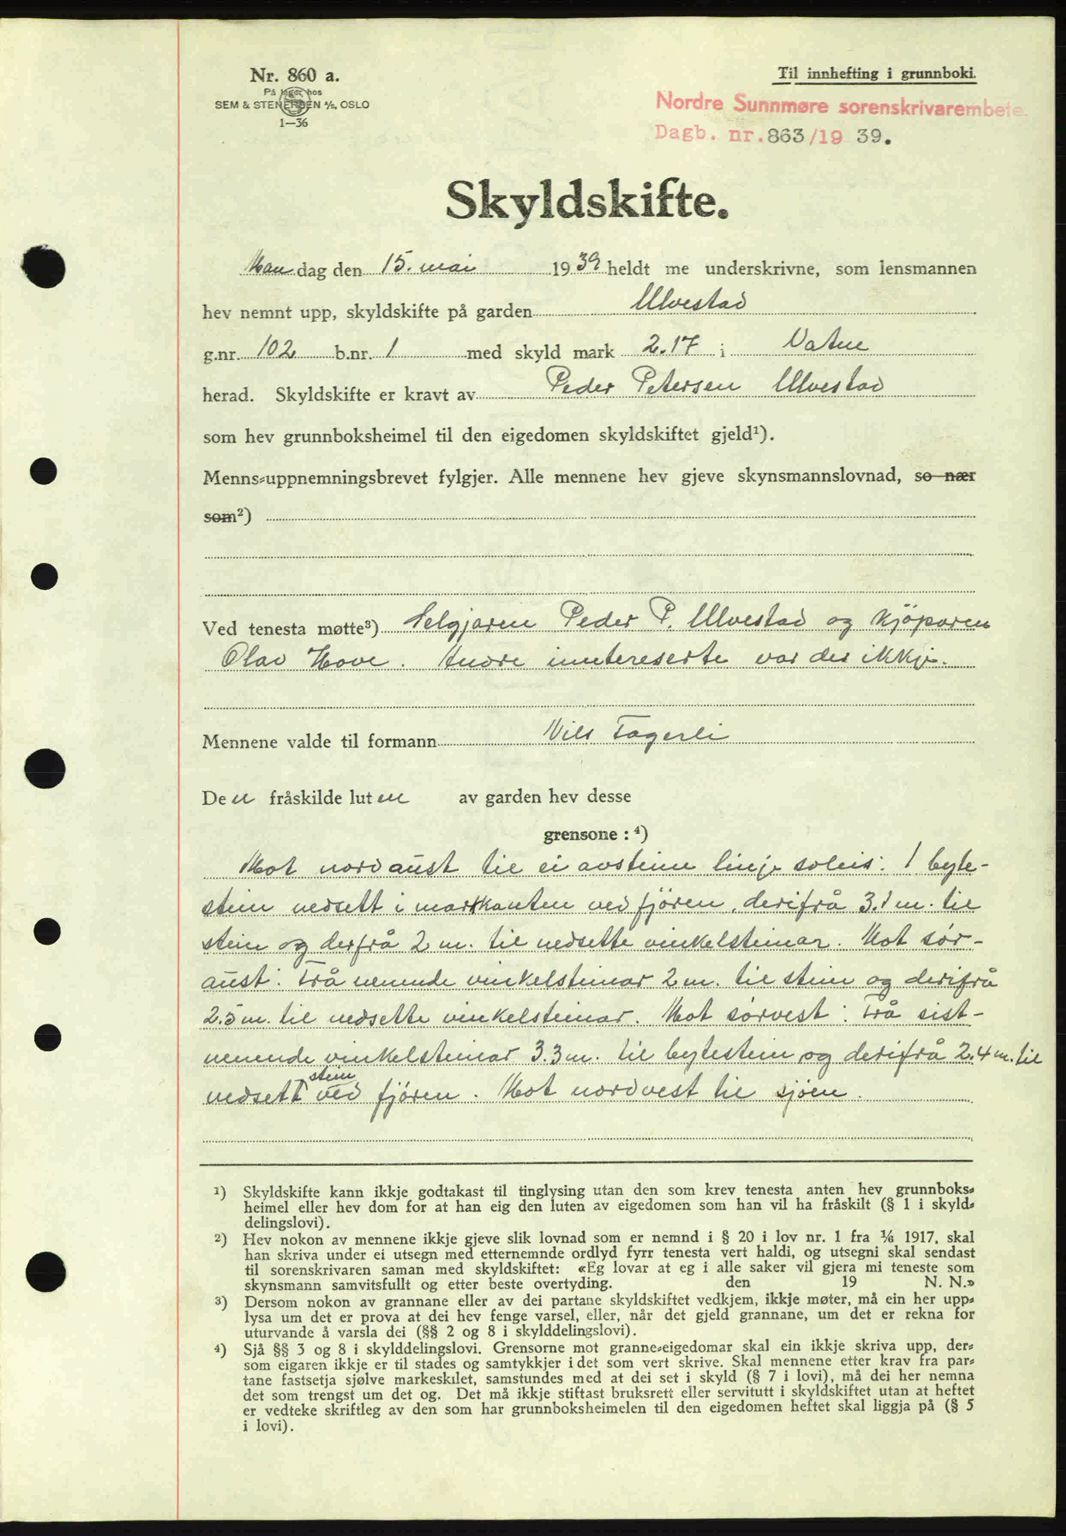 Nr. 860 a.
På lager hos
SEM & STENERSEN A/S, OSLO
1—36
Til innhefting i grunnboki.
Nordre Sunnmøre sorenskrivarembete.
Dagb. nr. 863/19 39.
Skyldskifte.
Mandag den 15. mai 1939 heldt me underskrivne, som lensmannen
hev nemnt upp, skyldskifte på garden Ulvestad
g.nr. 102 b.nr. 1 med skyld mark 2.17 i Vatne
herad. Skyldskifte er kravt av Peder Petersen Ulvestad
som hev grunnboksheimel til den eigedomen skyldskiftet gjeld¹).
Menns-uppnemningsbrevet fylgjer. Alle mennene hev gjeve skynsmannslovnad, so nær
som²)
Ved tenesta møtte³) Selgjaren Peder P. Ulvestad og kjöparen
Olav Hove. Andre inntereserte var der ikkje.
Mennene valde til formann Nils Fagerli
Den fråskilde luten av garden hev desse
grensone : ⁴)
Mot nordaust til ei avsteina linje soleis: 1 byte-
stein nedsett i markkanten ved fjören, derifrå 3.1 m. til
stein og derfrå 2 m. til nedsette vinkelsteinar. Mot sør-
aust: Frå nemnde vinkelsteinar 2 m. til stein og derifrå
2.5 m. til nedsette vinkelsteinar. Mot sørvest: Frå sist-
nemnde vinkelsteinar 3.3 m. til bytestein og derifrå 2.4 m. til
nedsett stein ved fjören. Mot nordvest til sjöen.
¹) Skyldskifte kann ikkje godtakast til tinglysing utan den som krev tenesta anten hev grunnboks-
heimel eller hev dom for at han eig den luten av eigedomen som han vil ha fråskilt (§ 1 i skyld-
delingslovi).
²) Hev nokon av mennene ikkje gjeve slik lovnad som er nemnd i § 20 i lov nr. 1 fra 1/6 1917, skal
han skriva under ei utsegn med etternemnde ordlyd fyrr tenesta vert haldi, og utsegni skal sendast
til sorenskrivaren saman med skyldskiftet: «Eg lovar at eg i alle saker vil gjera mi teneste som
skynsmann samvitsfullt og etter beste overtyding. den 19 N. N.»
³) Dersom nokon av grannane eller av dei partane skyldskiftet vedkjem, ikkje møter, må ein her upp-
lysa um det er prova at dei hev fenge varsel, eller, når det gjeld grannane, um det er rekna for
uturvande å varsla dei (§§ 2 og 8 i skylddelingslovi).
⁴) Sjå §§ 3 og 8 i skylddelingslovi. Grensorne mot granne-eigedomar skal ein ikkje skriva upp, der-
som eigaren ikkje er til stades og samtykkjer i det som vert skrive. Skal mennene etter krav fra par-
tane fastsetja sjølve markeskilet, samstundes med at dei set i skyld (§ 7 i lovi), må dei her nemna
det som trengst um det og. Det må ikkje stiftast bruksrett eller servitutt i skyldskiftet utan at heftet
er vedteke skriftleg av den som har grunnboksheimelen til den eigedomen heftet skal liggja på (§ 5
i lovi).